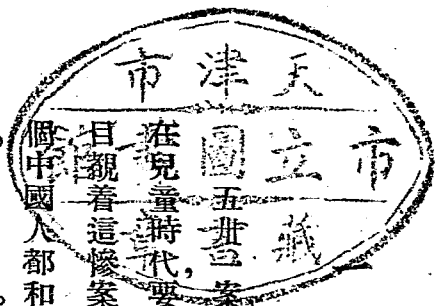 天津市
市立圖
藏書
一
五卅案
在兒童時代,要
目覩着這慘案
個中國人都和